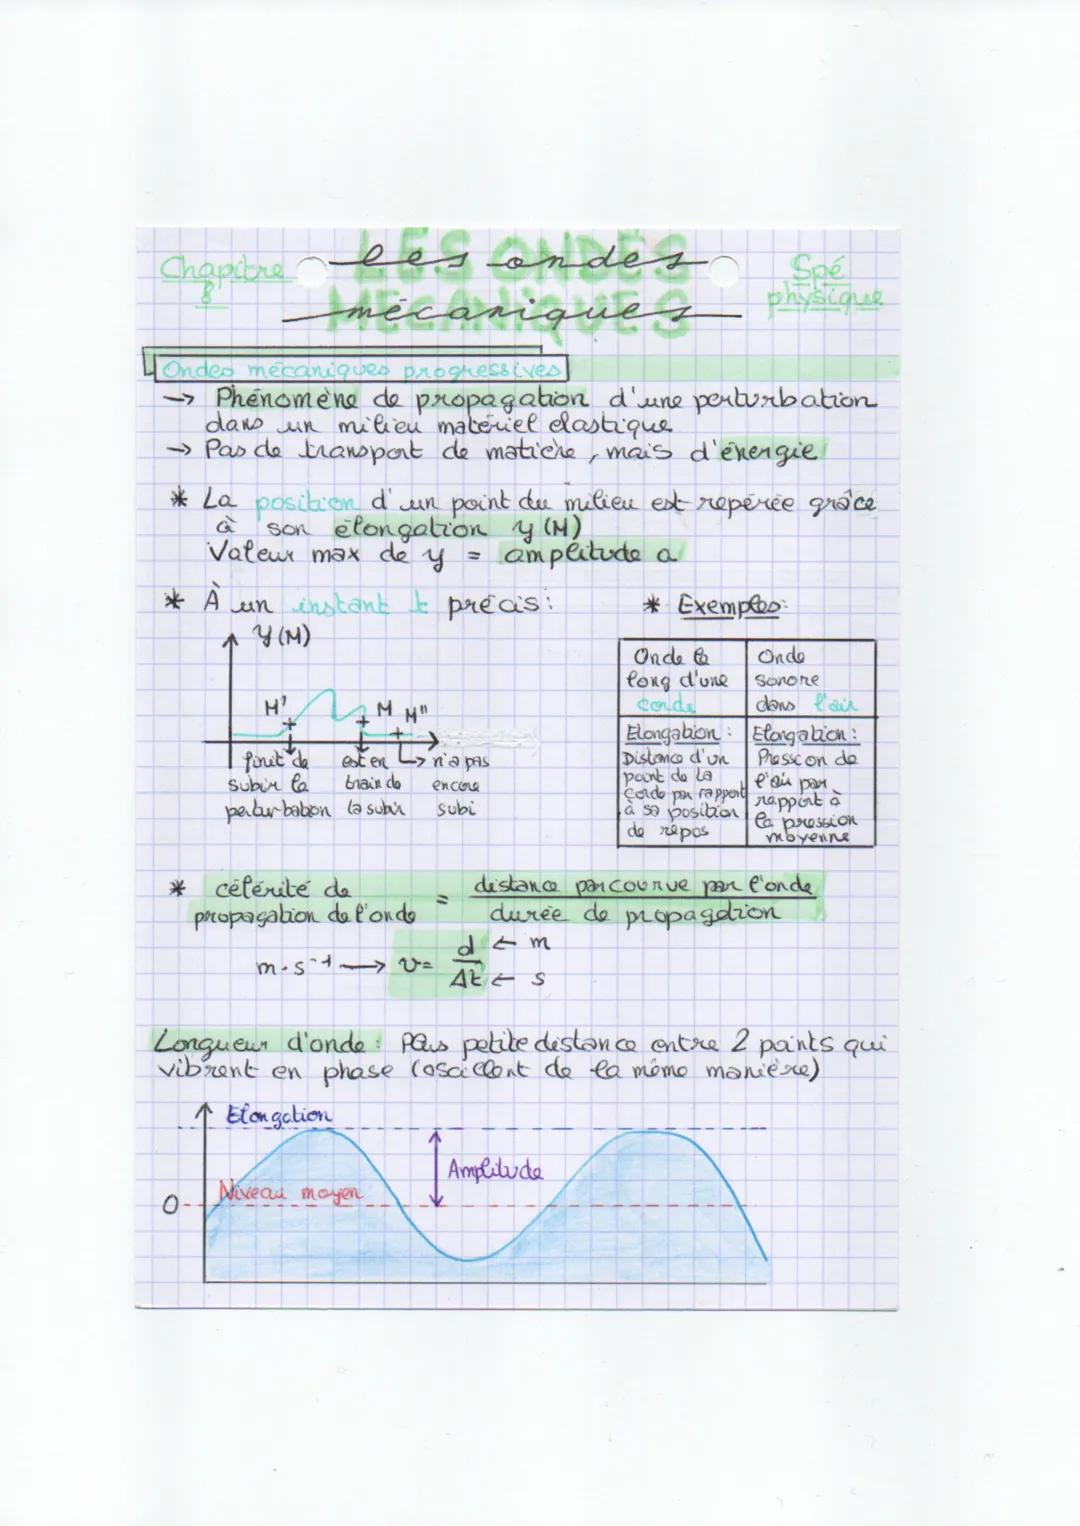 Chapitre 8
LES ONDES MÉCANIQUES
les ondes mécaniques
Spé physique
Ondes mécaniques progressives
→ Phénomène de propagation d'une perturbation
dans un milieu matériel élastique
→ Pas de transport de matière, mais d'énergie
* La position d'un point du milieu est repérée grâce
à son élongation y (M)
Valeur max de y = amplitude a
* À un instant t précis :
y (M)
M' M M"
finit de
subir la
perturbation
est en
train de
la subir
n'a pas
encore
subi
* Exemples :
Onde le
long d'une
corde
Onde
sonore
dans l'air
Elongation :
Distance d'un
point de la
corde par rapport
à sa position
de repos
Elongation :
Pression de
l'air par
rapport à
la pression
moyenne
* célérité de
propagation de l'onde
=
distance parcourue par l'onde
durée de propagation
m.s⁻¹ → v = d ← m
Δt ← s
Longueur d'onde : Plus petite distance entre 2 points qui
vibrent en phase (oscillent de la même manière)
Elongation
Amplitude
Niveau moyen
0